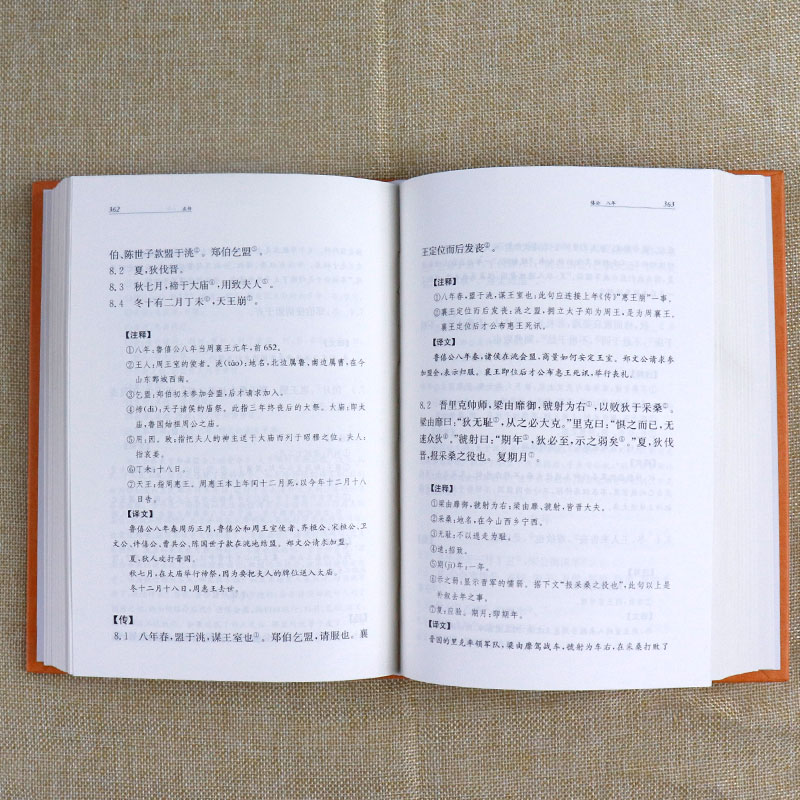 362
左传
伯、陈世子款盟于洮②。郑伯乞盟③。
8.2 夏,狄伐晋。
8.3 秋七月,禘于大庙④,用致夫人⑤。
8.4 冬十有二月丁未⑥,天王崩⑦。
【注释】
①八年:鲁僖公八年当周襄王元年,前652。
②王人:周王室的使者。洮(táo):地名,北边属鲁,南边属曹,在今
山东鄄城西南。
③乞盟:郑伯初未参加会盟,后才请求加入。
④禘(dì):天子诸侯的庙祭。此指三年终丧后的大祭。大庙:即太
庙,鲁国始祖周公之庙。
⑤用:因。致:指把夫人的神主送于太庙而列于昭穆之位。夫人:
指哀姜。
⑥丁未:十八日。
⑦天王:指周惠王。周惠王本上年闰十二月死,以今年十二月十八
日告。
【译文】
鲁僖公八年春周历正月,鲁僖公和周王室使者、齐桓公、宋桓公、卫
文公、许僖公、曹共公、陈国世子款在洮地结盟。郑文公请求加盟。
夏,狄人攻打晋国。
秋七月,在太庙举行禘祭,因为要把夫人的牌位送入太庙。
冬十二月十八日,周惠王去世。
【传】
8.1 八年春,盟于洮,谋王室也①。郑伯乞盟,请服也。襄
僖公 八年
363
王定位而后发丧②。
【注释】
①八年春,盟于洮,谋王室也:此句应连接上年《传》“惠王崩”一事。
②襄王定位而后发丧:洮之盟,拥立太子郑为周王,是为周襄王。
襄王定位后才公布惠王死讯。
【译文】
鲁僖公八年春,诸侯在洮会盟,商量如何安定王室。郑文公请求参
加会盟,表示归服。襄王即位后才公布惠王死讯,举行丧礼。
8.2 晋里克帅师,梁由靡御,虢射为右①,以败狄于采桑②。
梁由靡曰:“狄无耻③,从之必大克。”里克曰:“惧之而已,无
速众狄④。”虢射曰:“期年⑤,狄必至,示之弱矣⑥。”夏,狄伐
晋,报采桑之役也。复期月⑦。
【注释】
①梁由靡御,虢射为右:梁由靡、虢射,皆晋大夫。
②采桑:地名,在今山西乡宁西。
③无耻:不以逃走为耻。
④速:招致。
⑤期(jī)年:一年。
⑥示之弱:显示晋军的懦弱。据下文“报采桑之役也”,此句以上是
补叙去年之事。
⑦复:应验。期月:即期年。
【译文】
晋国的里克率领军队,梁由靡驾战车,虢射为车右,在采桑打败了